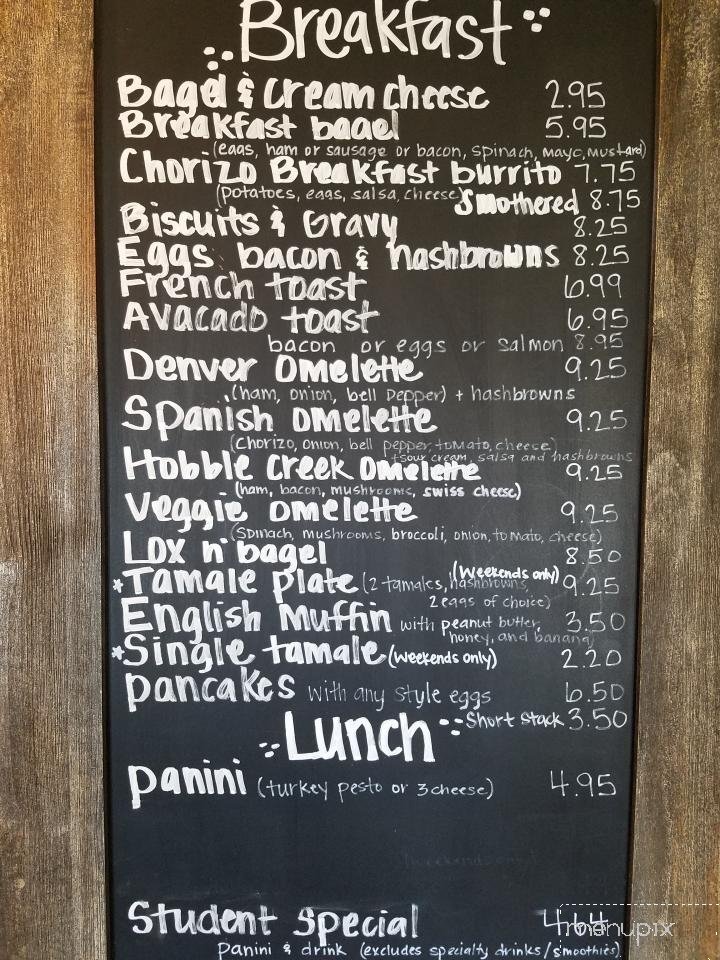 Breakfast
Bagel & Cream cheese 2.95
Breakfast bagel 5.95
(eggs, ham or sausage or bacon, spinach, mayo, mustard)
Chorizo Breakfast burrito 7.75
(potatoes, eggs, salsa, cheese) Smothered 8.75
Biscuits & Gravy 8.25
Eggs bacon & hashbrowns 8.25
French toast 6.99
Avacado toast 6.95
bacon or eggs or salmon 8.95
Denver omelette 9.25
(ham, onion, bell pepper) + hashbrowns
Spanish omelette 9.25
(Chorizo, onion, bell pepper, tomato, cheese)
+sour cream, salsa and hashbrowns
Hobble Creek omelette 9.25
(ham, bacon, mushrooms, swiss cheese)
Veggie omelette 9.25
(Spinach, mushrooms, broccoli, onion, tomato, cheese)
Lox n' bagel 8.50
(Weekends only)
*Tamale plate (2 tamales, hashbrowns, 9.25
2 eggs of choice)
English Muffin with peanut butter, 3.50
honey, and banana)
*Single tamale (Weekends only) 2.20
pancakes with any style eggs 6.50
Short stack 3.50
Lunch
panini (turkey pesto or 3 cheese) 4.95
(weekends only)
Student Special 4.64
panini & drink (excludes specialty drinks/smoothies)
menupix